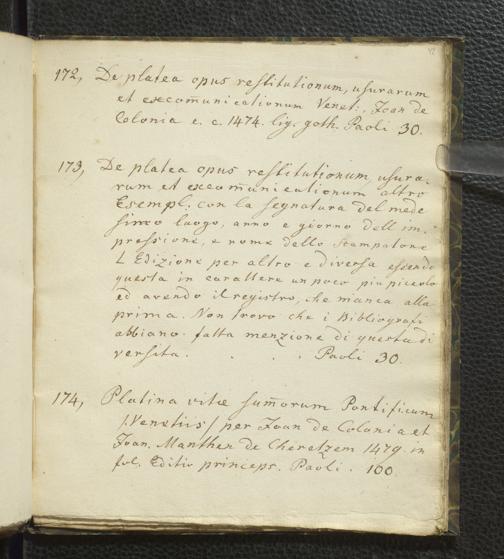 172, De platea opus restitutionum, usurarum
et excom̃unicationum Venet., Joan de
Colonia e. c. 1474. lig. goth. Paoli 30.
173, De platea opus restitutionum, usura-
rum et excom̃unicationum altro
Esempl. con la segnatura del mede
simo luogo, anno e giorno dell im-
pressione, e nome dello stampatore
L Edizione per altro e diversa essendo
questa in carattere un poco piu piccolo
ed avendo il registro, che manca alla
prima. Non trovo che i Bibliografi
abbiano fatta menzione di questa di
versita . . . . Paoli 30.
174, Platina vitæ sum̃orum Pontificum
/Venetiis/ per Joan de Colonia et
Joan. Manthen de Cheretzem 1479. in
fol. Editio princeps. Paoli . 100.